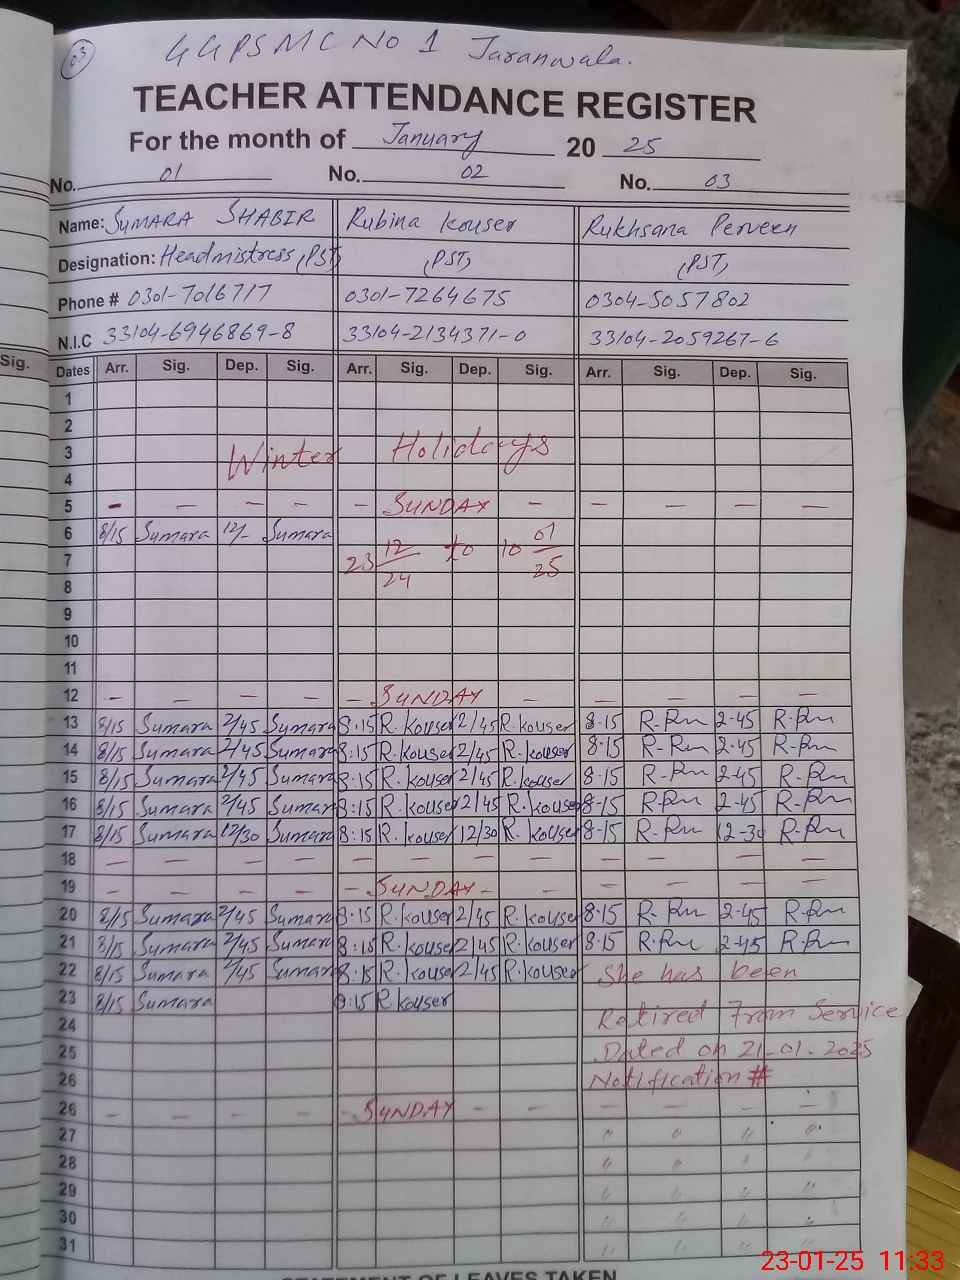 03
GGPS MC No 1 Jaranwala.
TEACHER ATTENDANCE REGISTER
For the month of January 20 25
No. 01 No. 02 No. 03
Name: SUMARA SHABIR Rubina Kouser Rukhsana Perveen
Designation: Headmistress (PST) (PST) (PST)
Phone # 0301-7016717 0301-7264675 0304-5057802
N.I.C 33104-6946869-8 33104-2134371-0 33104-2059267-6
Sig.
Dates Arr. Sig. Dep. Sig. Arr. Sig. Dep. Sig. Arr. Sig. Dep. Sig.
1
2
3 Winter Holidays
4
5 - - - - - SUNDAY - - - - -
6 8/15 Sumara 12/- Sumara
7 23 12/24 to 10 01/25
8
9
10
11
12 - - - - - SUNDAY - - - - -
13 8/15 Sumara 2/45 Sumara 8:15 R. kouser 2/45 R. kouser 8-15 R-Rm 2-45 R-Rm
14 8/15 Sumara 2/45 Sumara 8:15 R. kouser 2/45 R. kouser 8-15 R-Rm 2-45 R-Rm
15 8/15 Sumara 2/45 Sumara 8:15 R. kouser 2/45 R. kouser 8-15 R-Rm 2-45 R-Rm
16 8/15 Sumara 2/45 Sumara 8:15 R. kouser 2/45 R. kouser 8-15 R-Rm 2-45 R-Rm
17 8/15 Sumara 12/30 Sumara 8:15 R. kouser 12/30 R. kouser 8-15 R-Rm 12-30 R-Rm
18 - - - - - - - - - - - -
19 - - - - - SUNDAY - - - - - -
20 8/15 Sumara 2/45 Sumara 8:15 R. kouser 2/45 R. kouser 8-15 R-Rm 2-45 R-Rm
21 8/15 Sumara 2/45 Sumara 8:15 R. kouser 2/45 R. kouser 8-15 R-Rm 2-45 R-Rm
22 8/15 Sumara 2/45 Sumara 8:15 R. kouser 2/45 R. kouser She has been
23 8/15 Sumara 8:15 R kouser
24 Retired From Service
25 Dated on 21-01-2025
26 Notification #
26 - - - - - SUNDAY - - - - - -
27 " " " "
28 " " " "
29 " " " "
30 " " " "
31 " " " "
STATEMENT OF LEAVES TAKEN
23-01-25 11:33